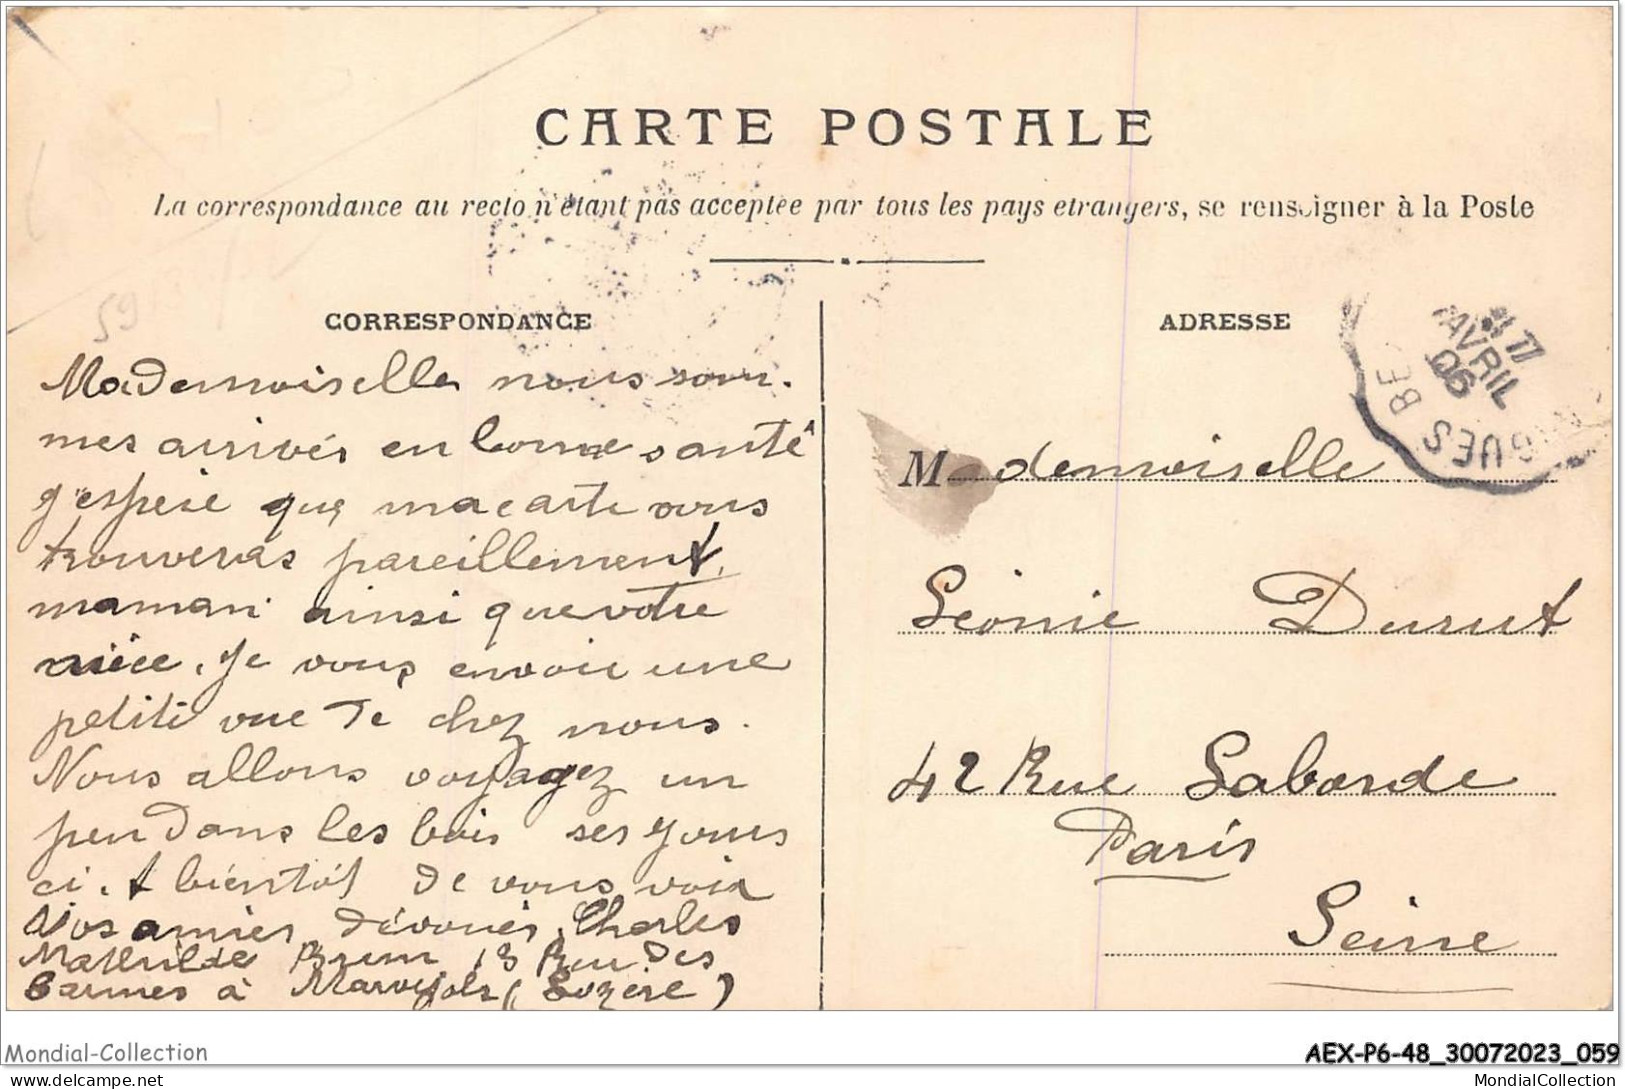 CARTE POSTALE
La correspondance au recto n'étant pas acceptée par tous les pays etrangers, se renseigner à la Poste
CORRESPONDANCE
Mademoiselle nous som-
mes arrivés en bonne santé
j'espère que ma carte vous
trouveras pareillement,
maman ainsi que votre
nièce. Je vous envoie une
petite vue de chez nous.
Nous allons voyagez un
peu dans les bois ses jours
ci. A bientôt de vous voir
Vos amies dévoués Charles
Mathilde Brun 13 Rue Des
Carmes à Marvejols (Lozère)
59
ADRESSE
17
AVRIL
06
GUES BE
Mademoiselle
Léonie Durut
42 Rue Laborde
Paris
Seine
Mondial-Collection
AEX-P6-48_30072023_059
delcampe.net
MondialCollection